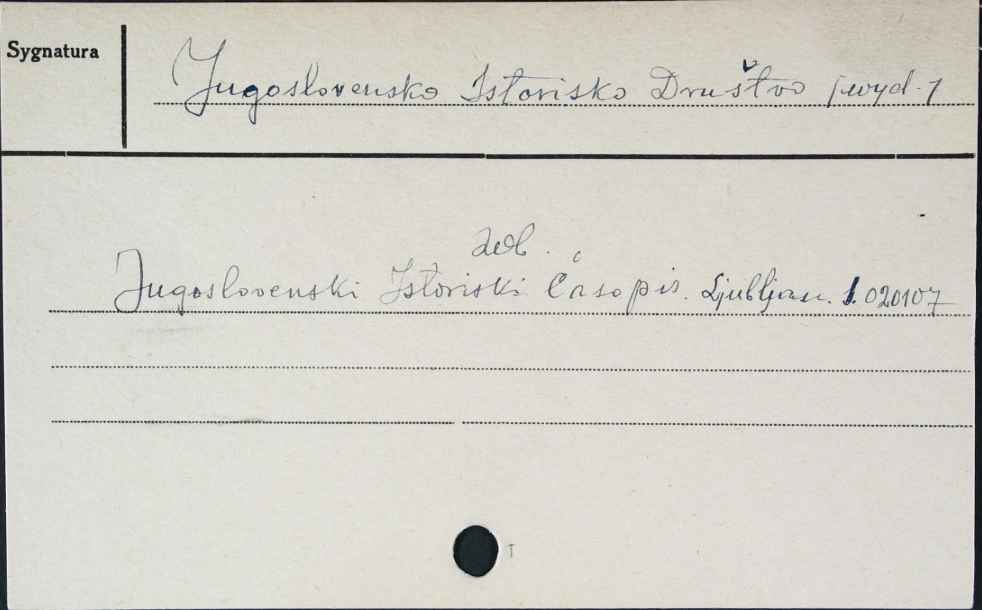 Sygnatura
Jugoslovensko Istorisko Društvo /wyd./
zob.
Jugoslovenski Istoriski Časopis. Ljubljan. 1. 020107